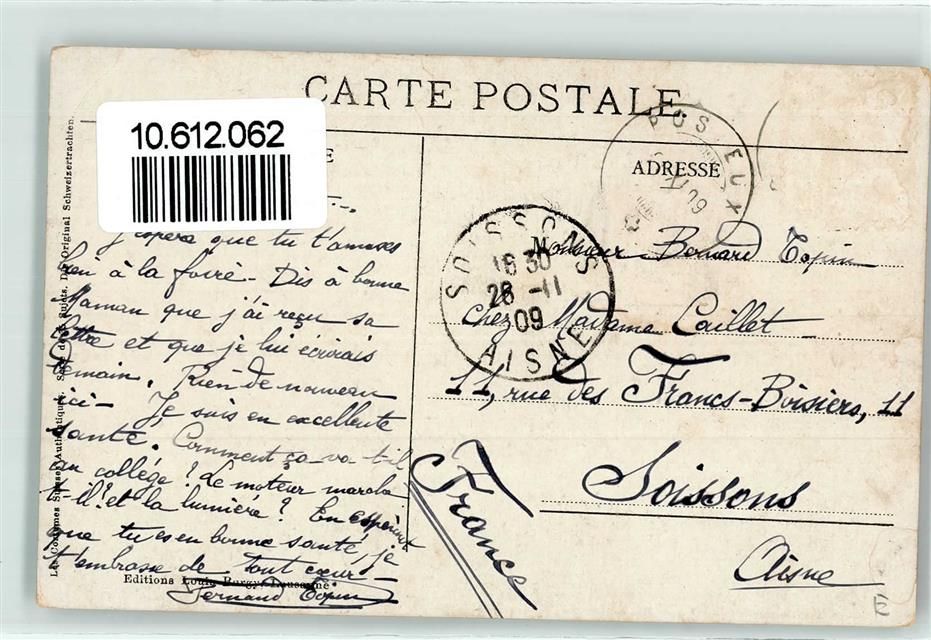 CARTE POSTALE.
10.612.062
E
ADRESSE
POSIEUX
09
SOISSONS
16 30
28 -11
09
AISNE
J'espère que tu t'amuses
bien à la foire - Dis à bonne
Maman que j'ai reçu sa
lettre et que je lui écrirais
demain. Rien de nouveau
ici - Je suis en excellente
santé. Comment ça va-t-il
au collège ? Le moteur marche
-t-il ? et la lumière ? En espérant
que tu es en bonne santé, je
t'embrasse de tout cœur -
Fernand Topin
Monsieur Bernard Topin
Chez Madame Caillet
11, rue des Francs-Boisiers, 11
Soissons
Aisne
France
Les Costumes Suisses Authentiques. Série de Sujets. Die Original Schweizertrachten.
Editions Louis Burgy, Lausanne
E